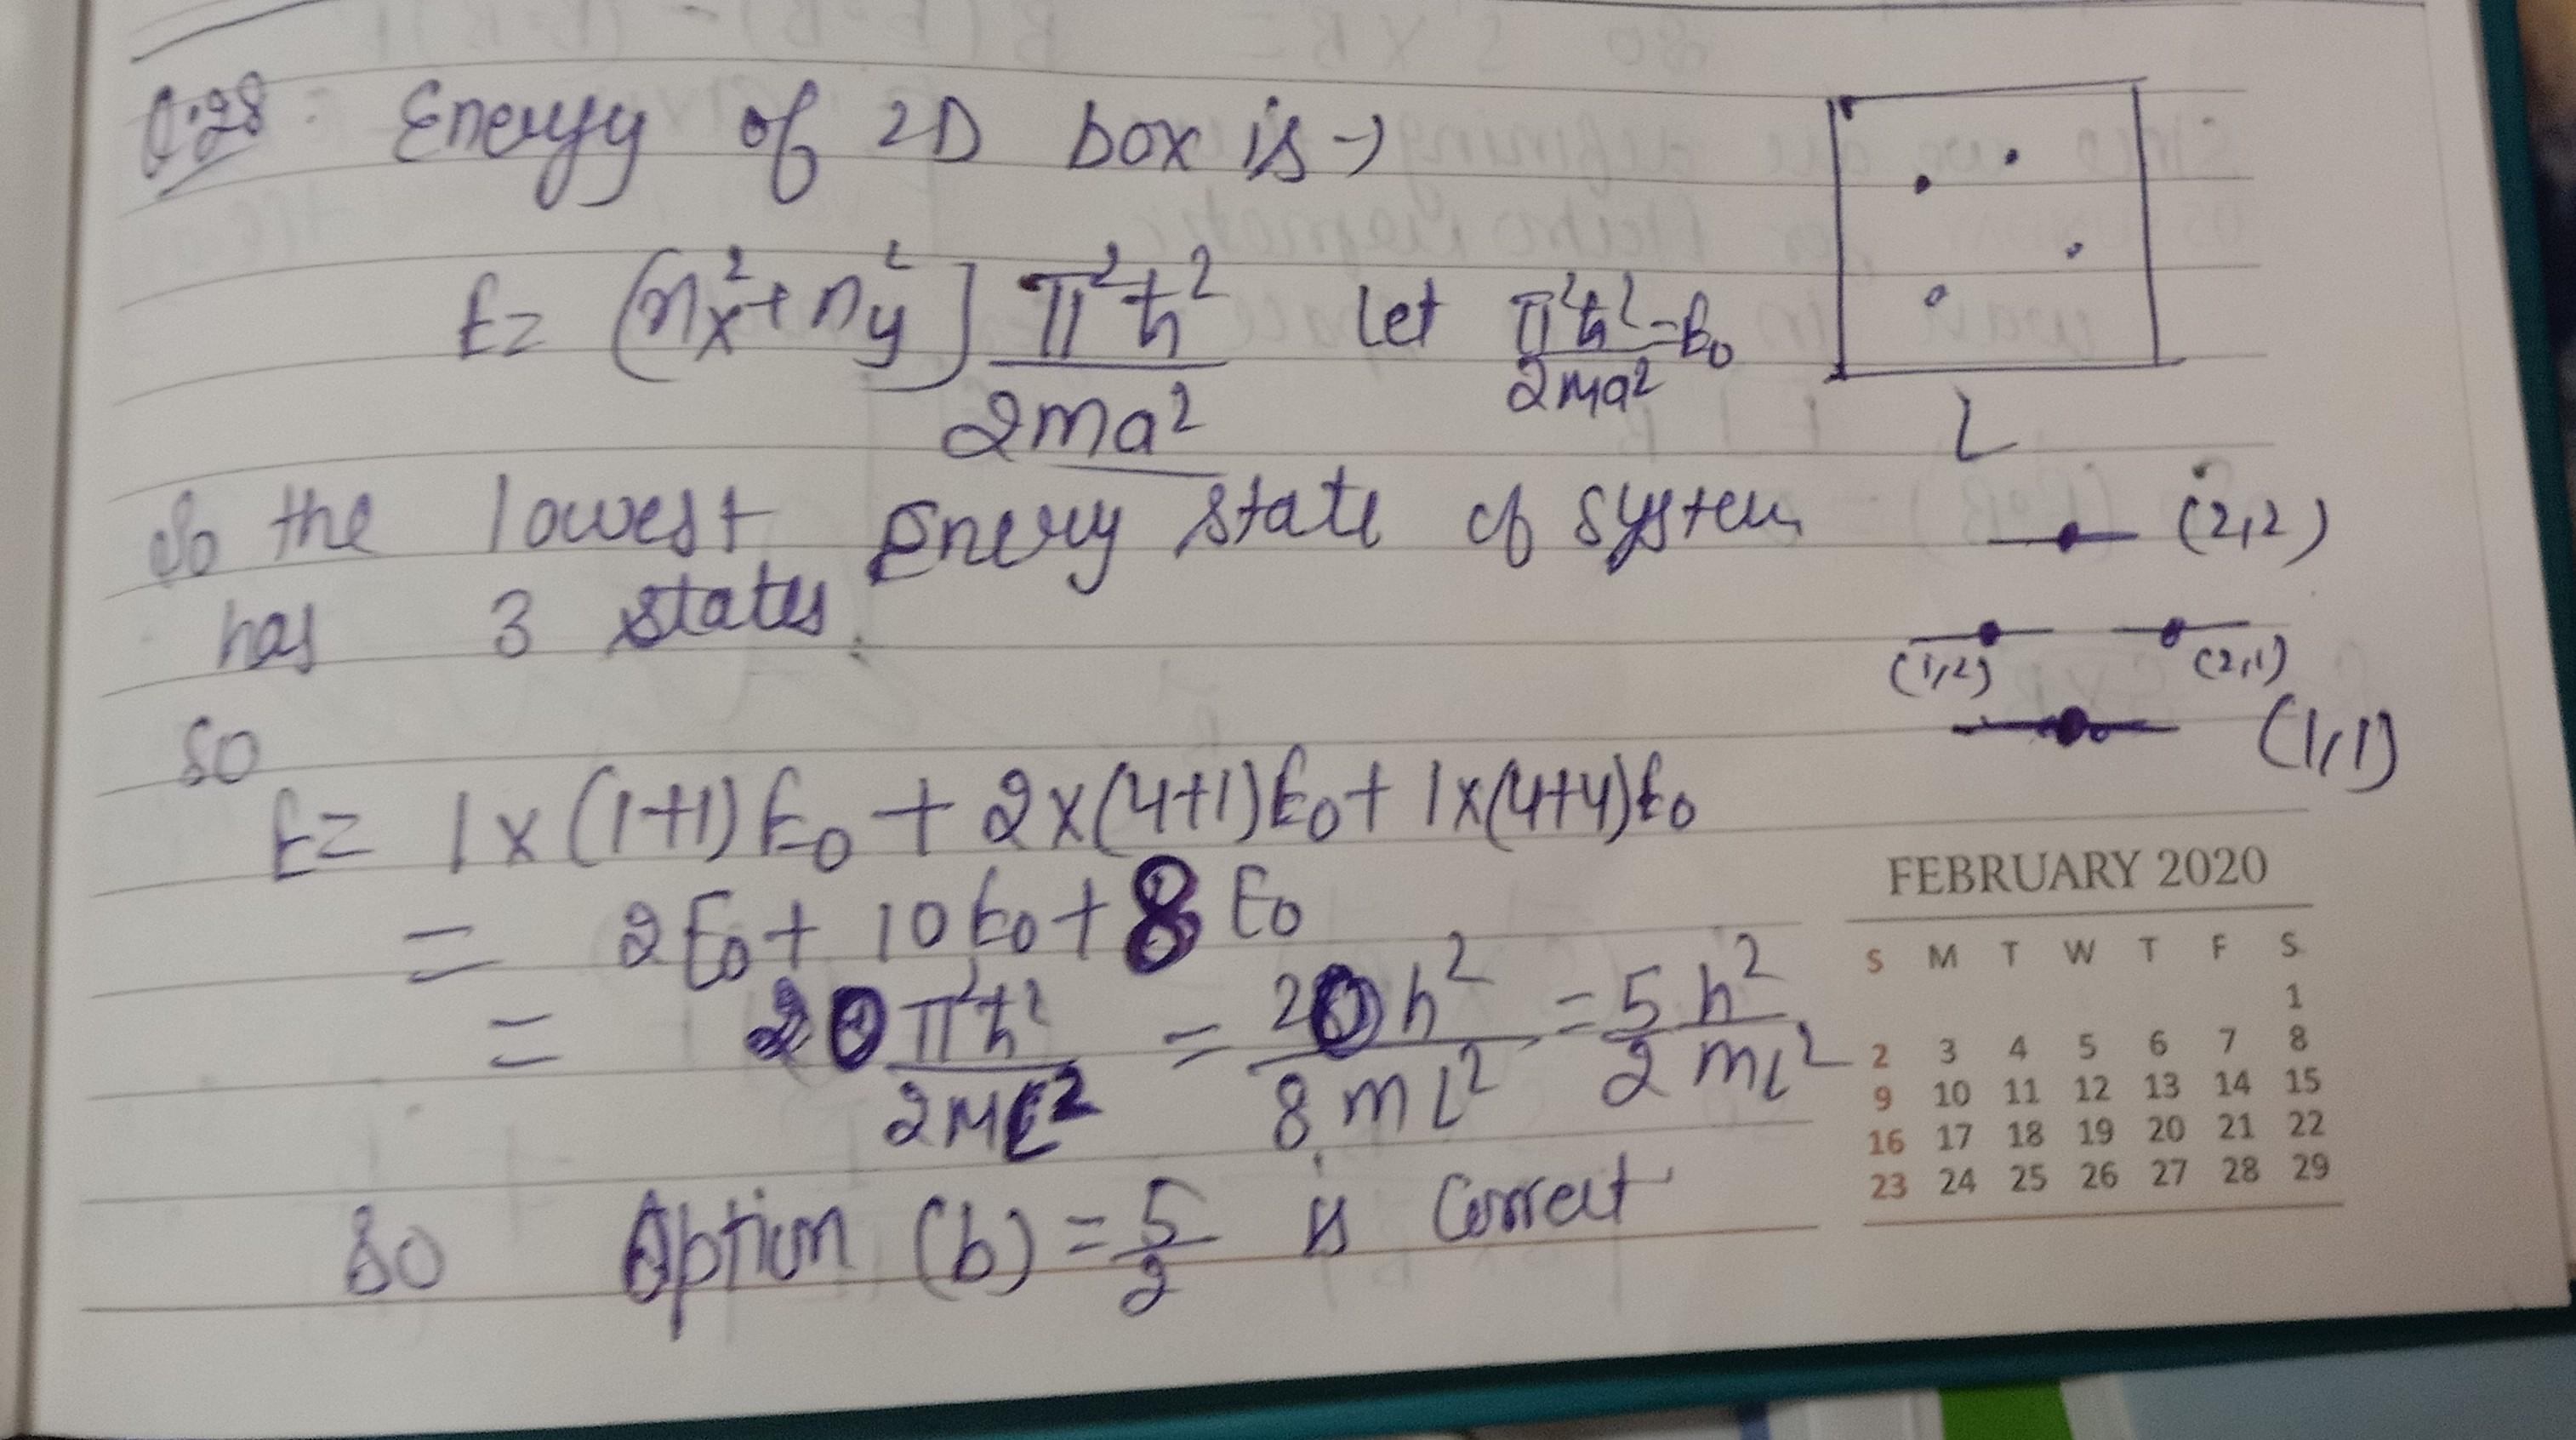 Q.28 Energy of 2D box is →
E = (nx² + ny²) π²ħ² / 2ma² let π²ħ² / 2ma² = E₀
L
So the lowest Energy state of system
has 3 states.
(2,2)
(1,2) (2,1)
(1,1)
so
E = 1 x (1+1) E₀ + 2 x (4+1) E₀ + 1 x (4+4) E₀
= 2E₀ + 10 E₀ + 8 E₀
= 20 π²ħ² / 2mL² = 20 h² / 8 m L² = 5 h² / 2 m L²
So Option (b) = 5/2 is Correct
FEBRUARY 2020
S M T W T F S
1
2 3 4 5 6 7 8
9 10 11 12 13 14 15
16 17 18 19 20 21 22
23 24 25 26 27 28 29